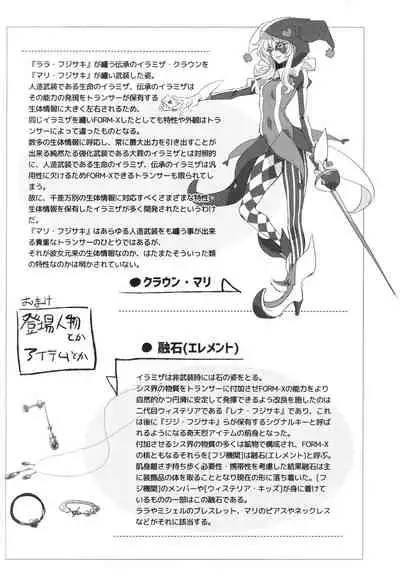 『ララ・フジサキ』が纏う伝承のイラミザ・クラウンを
『マリ・フジサキ』が纏い武装した姿。
人造武装である生命のイラミザ、伝承のイラミザは
その能力の発現をトランサーが保有する
生体情報に大きく左右されるため、
同じイラミザを纏いFORM-Xしたとしても特性や外観はトラ
ンサーによって違ったものとなる。
数多の生体情報に呼応し、常に最大出力を引き出すことが
出来る純然たる強化武装である大罪のイラミザとは対照的
に、人造武装である生命のイラミザ、伝承のイラミザは汎
用性に欠けるためFORM-Xできるトランサーも限られてし
まう。
故に、千差万別の生体情報に対応すべくさまざまな特性、
生体情報を保有したイラミザが多く開発されたというわけ
だ。
『マリ・フジサキ』はあらゆる人造武装をも纏う事が出来
る貴重なトランサーのひとりではあるが、
それが彼女元来の生体情報なのか、はたまたそういった類
の特性なのかは明かされていない。
●クラウン・マリ
おまけ
登場人物
とか
アイテムとか
● 融石(エレメント)
イラミザは非武装時には石の姿をとる。
シス界の物質をトランサーに付加させFORM-Xの能力をより
自然的かつ円滑に安定して発揮できるよう改良を施したのは
二代目ウィステリアである『レナ・フジサキ』であり、これ
は後に『ジジ・フジサキ』らが保有するシグナルキーと呼
ばれるようになる奇天烈アイテムの前身となった。
付加させるシス界の物質の多くは鉱物で構成され、FORM-X
の核ともなるそれらを(フジ機関)は融石(エレメント)と呼ぶ。
肌身離さず持ち歩く必要性・携帯性を考慮した結果融石は主
に装飾品の体を取ることとなり現在の形に落ち着いた。(フ
ジ機関)のメンバーや(ウィステリア・キッズ)が身に着けて
いるものの一部はこの融石である。
ララやミシェルのブレスレット、マリのピアスやネックレス
などがそれに該当する。